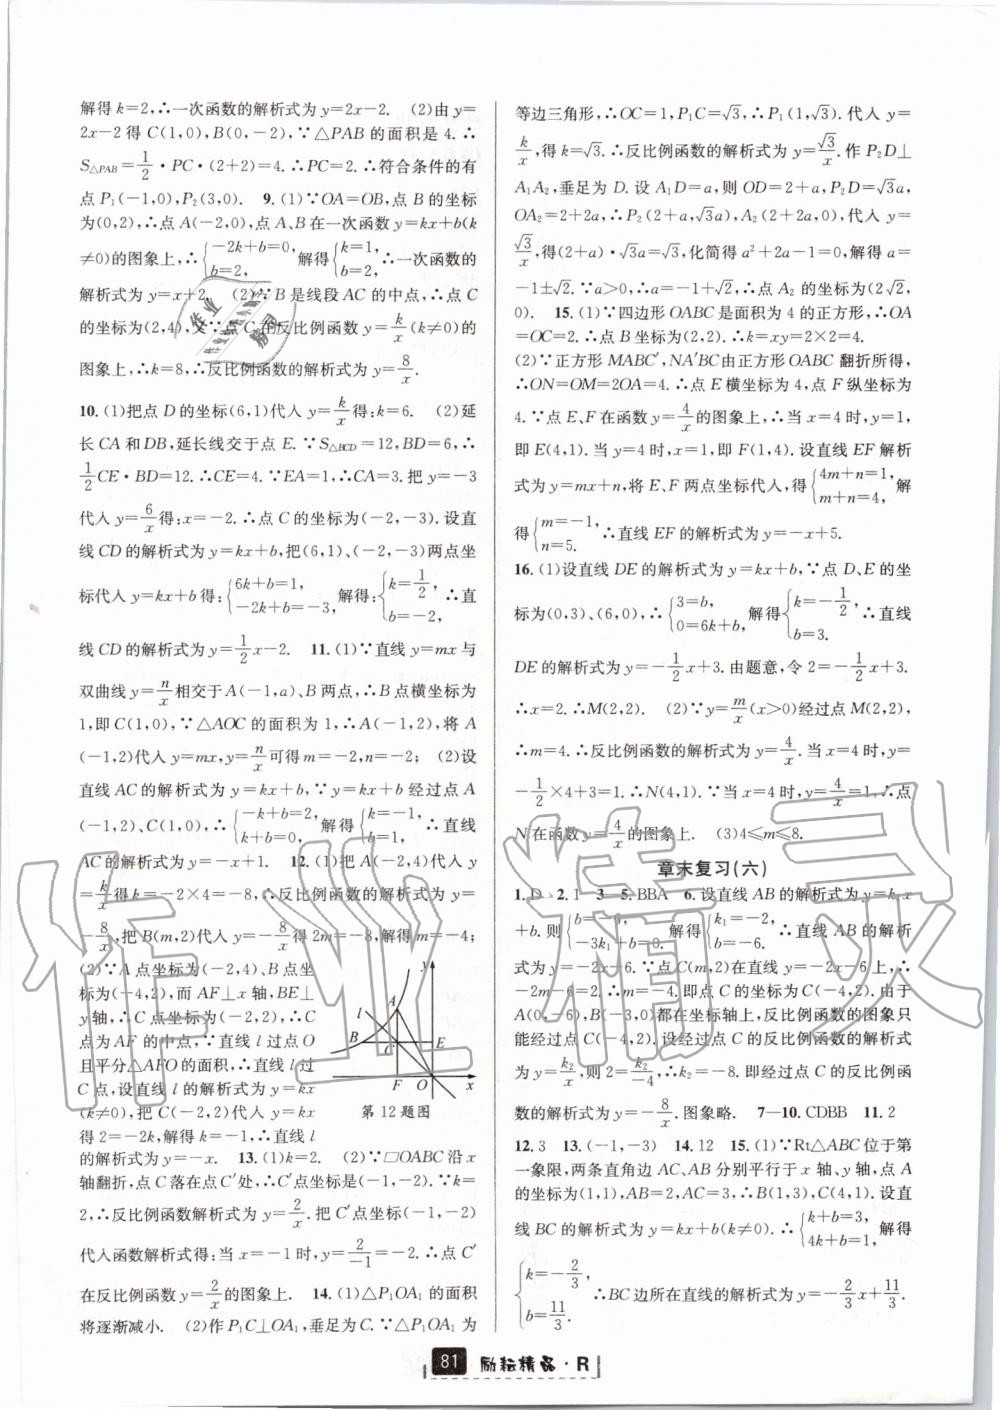 解得k=2,∴一次函数的解析式为y=2x-2. (2)由y=
2x-2得C(1,0),B(0,-2),∵△PAB的面积是4.∴
S△PAB=1/2·PC·(2+2)=4.∴PC=2.∴符合条件的有
点P₁(-1,0),P₂(3,0). 9.(1)∵OA=OB,点B的坐标
为(0,2),∴点A(-2,0),点A、B在一次函数y=kx+b(k
≠0)的图象上,∴{-2k+b=0, b=2, 解得{k=1, b=2, ∴一次函数的
解析式为y=x+2. (2)∵B是线段AC的中点,∴点C
的坐标为(2,4),又∵点C在反比例函数y=k/x(k≠0)的
图象上,∴k=8,∴反比例函数的解析式为y=8/x.
10.(1)把点D的坐标(6,1)代入y=k/x得:k=6. (2)延
长CA和DB,延长线交于点E.∵S△BCD=12,BD=6,∴
1/2CE·BD=12.∴CE=4.∵EA=1,∴CA=3.把y=-3
代入y=6/x得:x=-2.∴点C的坐标为(-2,-3).设直
线CD的解析式为y=kx+b,把(6,1)、(-2,-3)两点坐
标代入y=kx+b得:{6k+b=1, -2k+b=-3, 解得:{k=1/2, b=-2, ∴直
线CD的解析式为y=1/2x-2. 11.(1)∵直线y=mx与
双曲线y=n/x相交于A(-1,a)、B两点,∴B点横坐标为
1,即C(1,0),∵△AOC的面积为1,∴A(-1,2),将A
(-1,2)代入y=mx,y=n/x可得m=-2,n=-2; (2)设
直线AC的解析式为y=kx+b,∵y=kx+b经过点A
(-1,2)、C(1,0),∴{-k+b=2, k+b=0, 解得{k=-1, b=1, ∴直线
AC的解析式为y=-x+1. 12.(1)把A(-2,4)代入y=
k/x得k=-2×4=-8,∴反比例函数的解析式为y=
-8/x,把B(m,2)代入y=-8/x得2m=-8,解得m=-4;
(2)∵A点坐标为(-2,4)、B点坐
标为(-4,2),而AF⊥x轴,BE⊥
y轴,∴C点坐标为(-2,2),∴C
点为AF的中点,∵直线l过点O
且平分△AFO的面积,∴直线l过
C点,设直线l的解析式为y=kx
(k≠0),把C(-2,2)代入y=kx
得2=-2k,解得k=-1,∴直线l
y
l
A
B
C
E
F
O
x
第12题图
的解析式为y=-x. 13.(1)k=2. (2)∵□OABC沿x
轴翻折,点C落在点C′处,∴C′点坐标是(-1,-2).∵k=
2,∴反比例函数解析式为y=2/x.把C′点坐标(-1,-2)
代入函数解析式得:当x=-1时,y=2/-1=-2.∴点C′
在反比例函数y=2/x的图象上. 14.(1)△P₁OA₁的面积
将逐渐减小. (2)作P₁C⊥OA₁,垂足为C.∵△P₁OA₁为
等边三角形,∴OC=1,P₁C=√3,∴P₁(1,√3).代入y=
k/x,得k=√3.∴反比例函数的解析式为y=√3/x.作P₂D⊥
A₁A₂,垂足为D.设A₁D=a,则OD=2+a,P₂D=√3a,
OA₂=2+2a,∴P₂(2+a,√3a),A₂(2+2a,0),代入y=
√3/x,得(2+a)·√3a=√3,化简得a²+2a-1=0,解得a=
-1±√2.∵a>0,∴a=-1+√2,∴点A₂的坐标为(2√2,
0). 15.(1)∵四边形OABC是面积为4的正方形,∴OA
=OC=2.∴点B坐标为(2,2).∴k=xy=2×2=4.
(2)∵正方形MABC′,NA′BC由正方形OABC翻折所得,
∴ON=OM=2OA=4.∴点E横坐标为4,点F纵坐标为
4.∵点E、F在函数y=4/x的图象上,∴当x=4时,y=1,
即E(4,1).当y=4时,x=1,即F(1,4).设直线EF解析
式为y=mx+n,将E、F两点坐标代入,得{4m+n=1, m+n=4, 解
得{m=-1, n=5. ∴直线EF的解析式为y=-x+5.
16.(1)设直线DE的解析式为y=kx+b,∵点D、E的坐
标为(0,3)、(6,0),∴{3=b, 0=6k+b, 解得{k=-1/2, b=3. ∴直线
DE的解析式为y=-1/2x+3.由题意,令2=-1/2x+3.
∴x=2.∴M(2,2). (2)∵y=m/x(x>0)经过点M(2,2),
∴m=4.∴反比例函数的解析式为y=4/x.当x=4时,y=
-1/2×4+3=1.∴N(4,1).∵当x=4时,y=4/x=1,∴点
N在函数y=4/x的图象上. (3)4≤m≤8.
章末复习(六)
1.D 2.1 3—5.BBA 6.设直线AB的解析式为y=k₁x
+b.则{b=-6, -3k₁+b=0. 解得{k₁=-2, b=-6. ∴直线AB的解析式
为y=-2x-6.∵点C(m,2)在直线y=-2x-6上,∴
-2m-6=2.∴m=-4.即点C的坐标为C(-4,2).由于
A(0,-6),B(-3,0)都在坐标轴上,反比例函数的图象只
能经过点C(-4,2).设经过点C的反比例函数的解析式
为y=k₂/x,则2=k₂/-4,∴k₂=-8.即经过点C的反比例函
数的解析式为y=-8/x.图象略. 7—10.CDBB 11.2
12.3 13.(-1,-3) 14.12 15.(1)∵Rt△ABC位于第
一象限,两条直角边AC、AB分别平行于x轴、y轴,点A
的坐标为(1,1),AB=2,AC=3,∴B(1,3),C(4,1).设直
线BC的解析式为y=kx+b(k≠0).∴{k+b=3, 4k+b=1, 解得
{k=-2/3, b=11/3. ∴BC边所在直线的解析式为y=-2/3x+11/3.
81 励耘精品·R
作业精灵